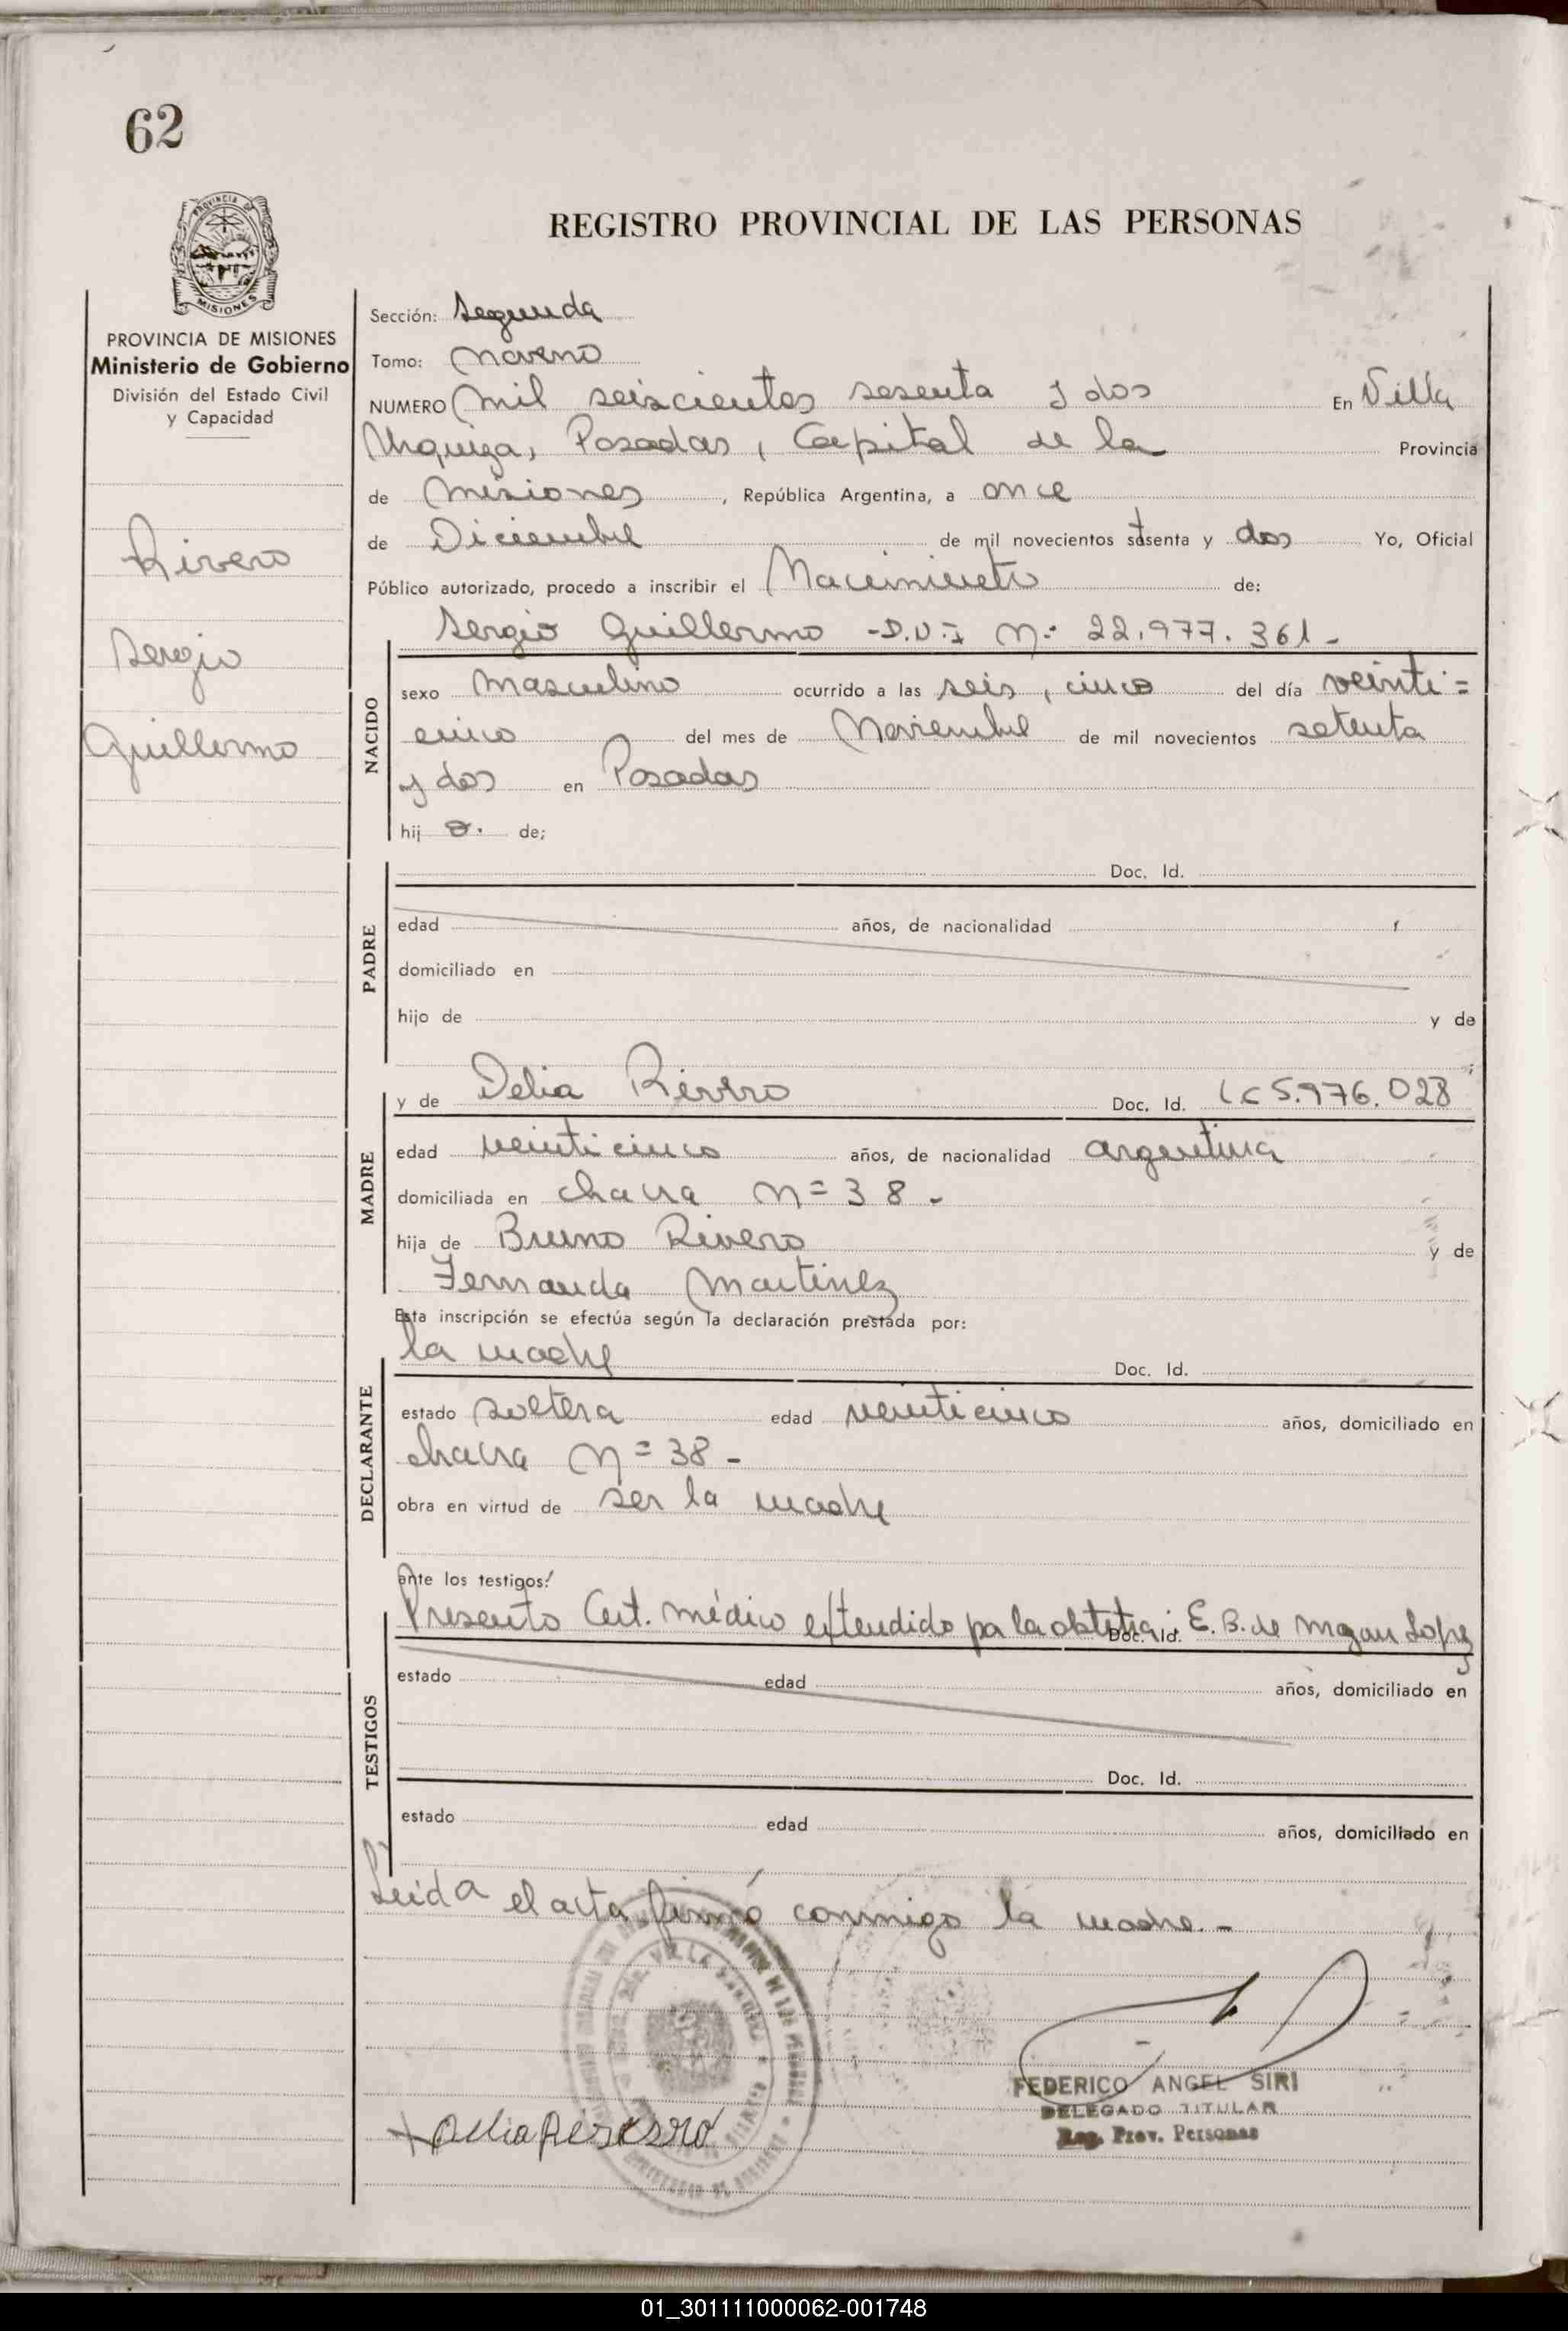 62
REGISTRO PROVINCIAL DE LAS PERSONAS
PROVINCIA DE MISIONES
MISIONES
PROVINCIA DE MISIONES
Ministerio de Gobierno
División del Estado Civil
y Capacidad
Rivero
Sergio
Guillermo
Sección: Segunda
Tomo: Noveno
NUMERO Mil seiscientos sesenta y dos En Villa
Urquiza, Posadas, Capital de la Provincia
de Misiones, República Argentina, a once
de Diciembre de mil novecientos setenta y dos Yo, Oficial
Público autorizado, procedo a inscribir el Nacimiento de:
Sergio Guillermo - D.N.I N.º 22.977.361 -
NACIDO
sexo Masculino ocurrido a las seis, cinco del día veinti=
cinco del mes de Noviembre de mil novecientos setenta
y dos en Posadas
hij o. de;
PADRE
Doc. Id.
edad años, de nacionalidad
domiciliado en
hijo de y de
MADRE
y de Delia Rivero Doc. Id. LC 5.976.028
edad veinticinco años, de nacionalidad argentina
domiciliada en chacra N= 38 -
hija de Bruno Rivero y de
Fernanda Martinez
Esta inscripción se efectúa según la declaración prestada por:
DECLARANTE
la madre Doc. Id.
estado soltera edad veinticinco años, domiciliado en
chacra N= 38 -
obra en virtud de ser la madre
ante los testigos:
TESTIGOS
Presento Cert. médico extendido por la obstetra: E. B. de Lopez Doc. Id.
estado edad años, domiciliado en
Doc. Id.
estado edad años, domiciliado en
Leida el acta firmó conmigo la madre. -
VILLA URQUIZA
FEDERICO ANGEL SIRI
DELEGADO TITULAR
Reg. Prov. Personas
Delia Rivero
01_301111000062-001748